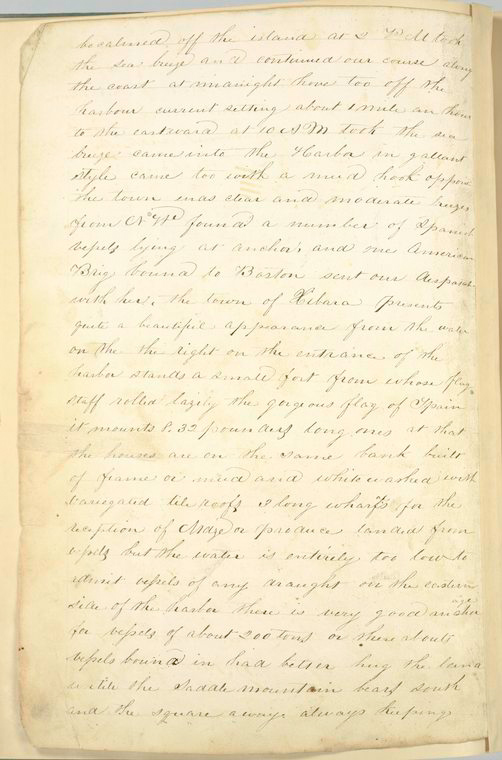 becalmed off the island at 2 P M took
the sea breeze and continued our course along
the coast at midnight hove too off the
harbour current setting about 1 mile an hour
to the eastward at 10 A M took the sea
breeze came into the Harbor in gallant
style came too with a mud hook oppos
the town was clear and moderate breezes
from N° Wd found a number of Spanish
vessels lying at anchor, and one American
Brig bound to Boston sent our despatch
with her, the town of Xibara presents
quite a beautiful appearance from the water
on the the right on the entrance of the
harbor stands a small fort from whose flag
staff rolled lazily the gorgeous flag of Spain
it mounts 8, 32 pounders long ones at that
the houses are on the same bank built
of frame or mud and white washed with
varegated tile roofs 2 long wharfs for the
reception of or produce landed from
vessels but the water is entirely too low to
admit vessels of any draught on the eastern
side of the harbor there is very good anchorage
for vessels of about 200 tons or there abouts
vessels bound in had better hug the land
untile the Saddle mountain bears south
and the square a way. always keeping